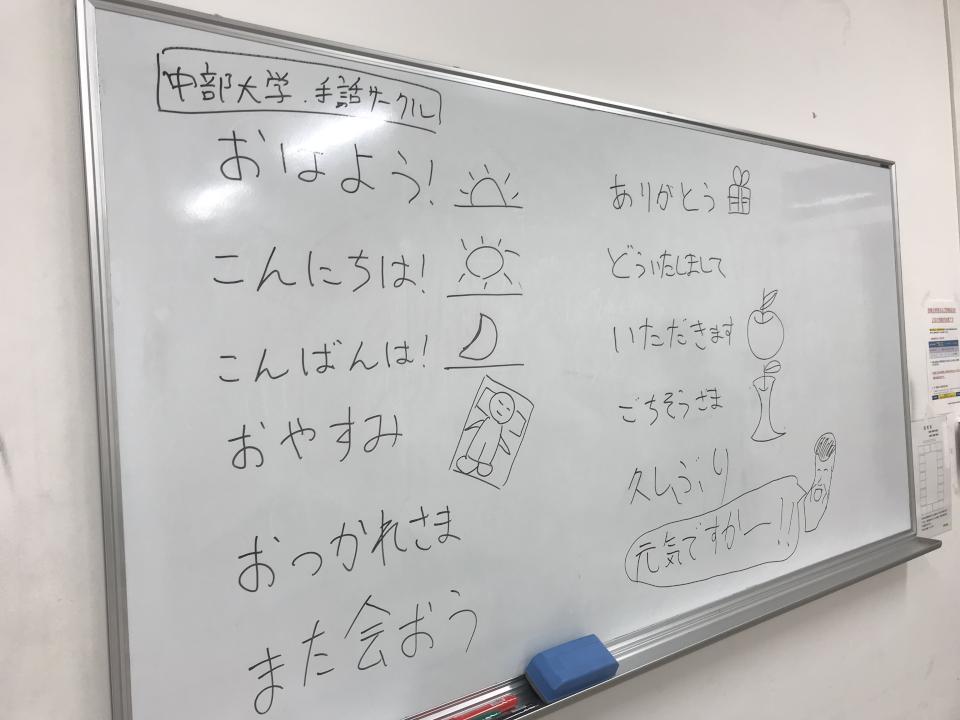 中部大学.手話サークル
おはよう!
こんにちは!
こんばんは!
おやすみ
おつかれさま
また会おう
ありがとう
どういたしまして
いただきます
ごちそうさま
久しぶり
元気ですかー!!